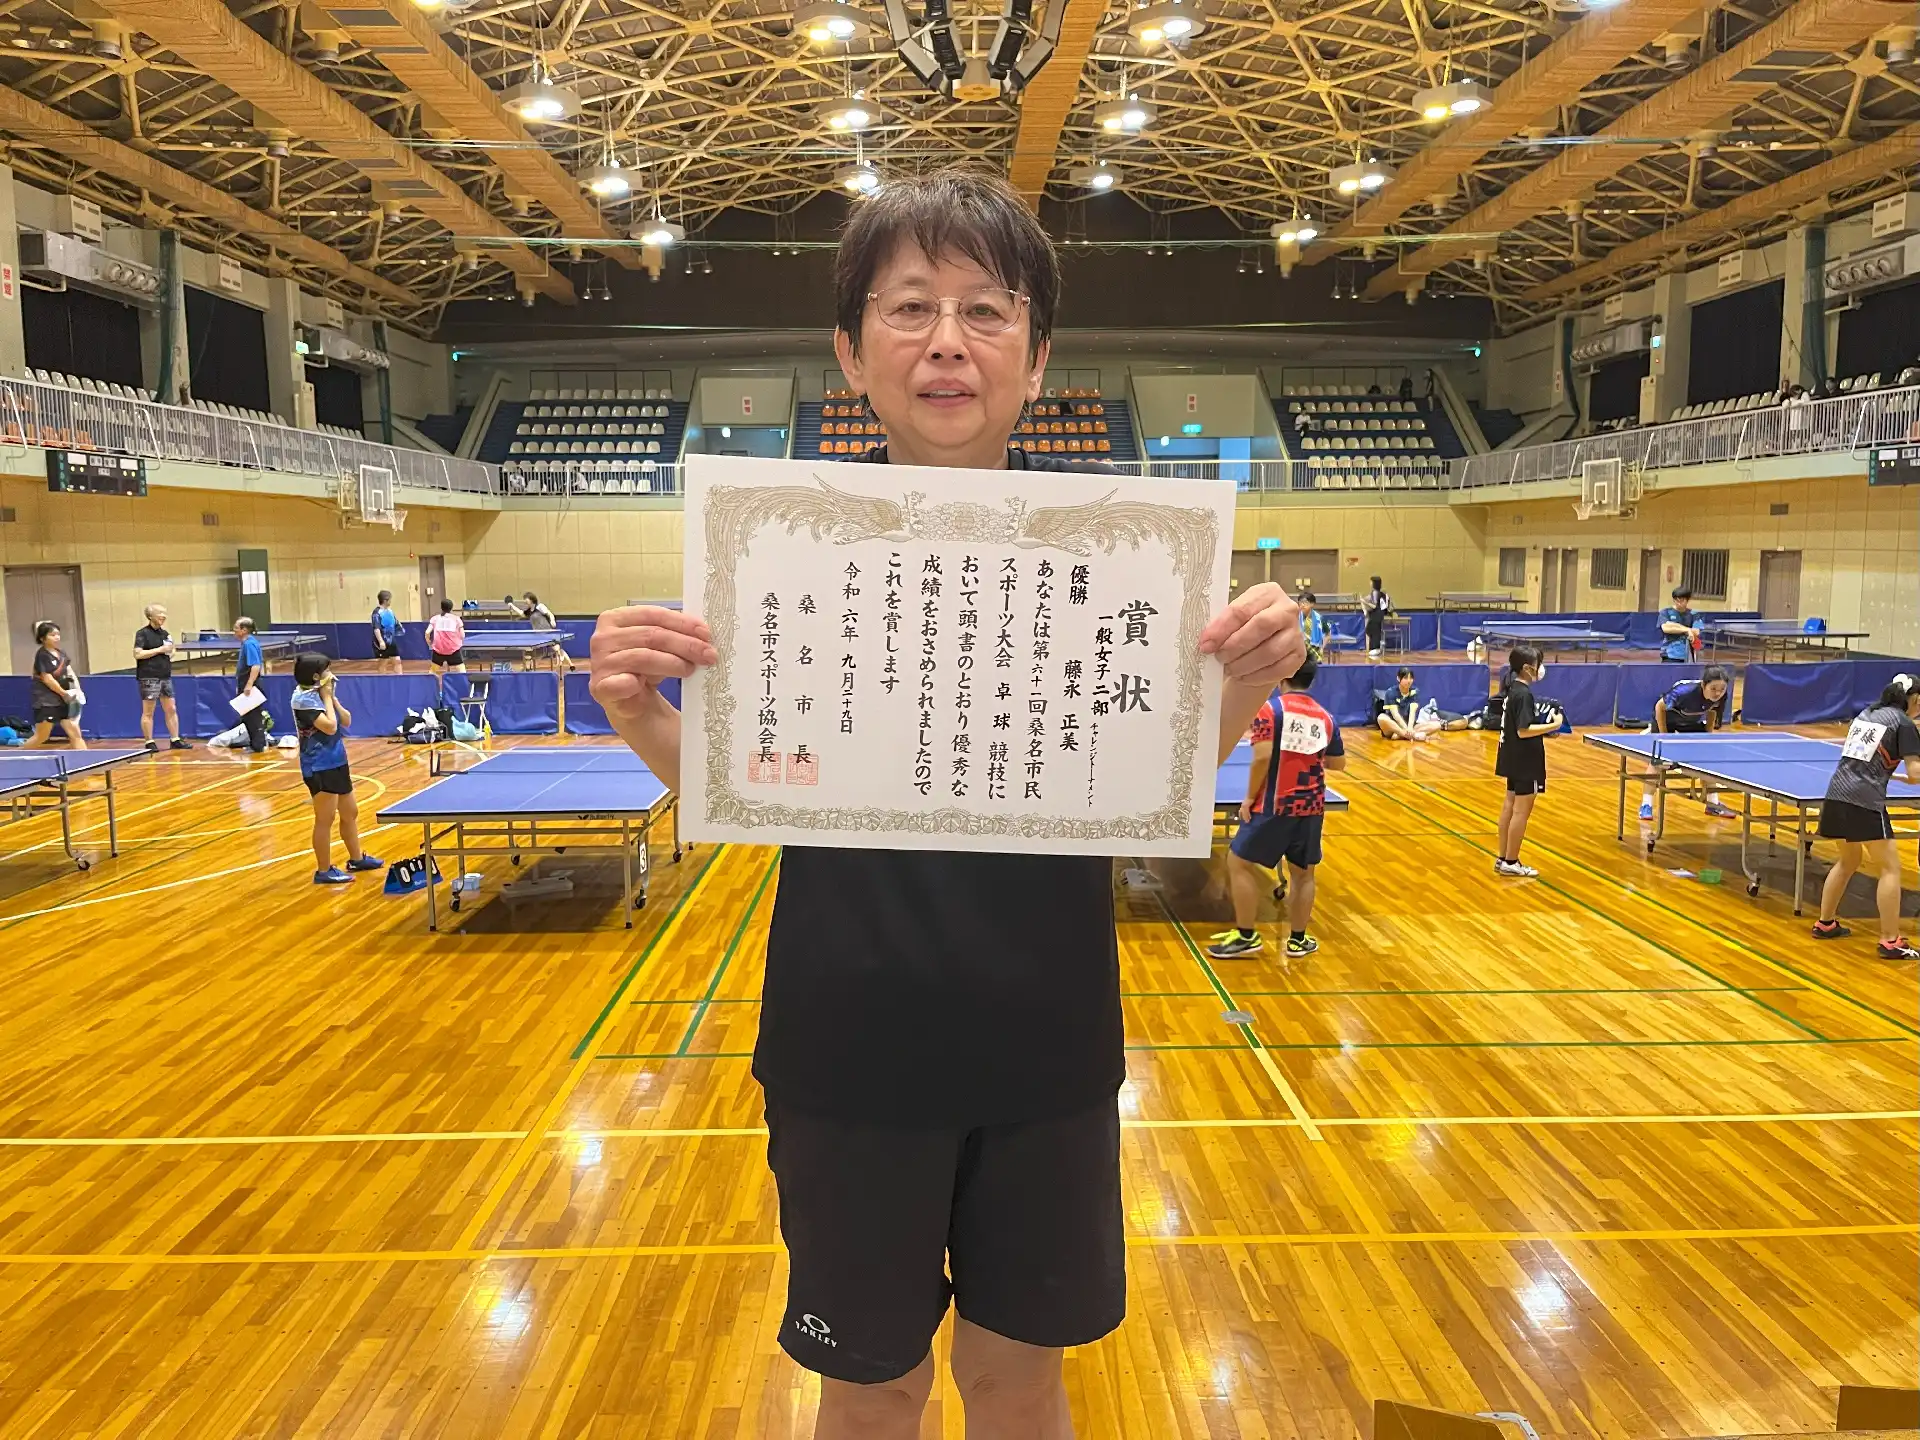 賞状
一般女子二部 チャレンジトーナメント
優勝 藤永 正美
あなたは第六十一回桑名市民
スポーツ大会 卓球 競技に
おいて頭書のとおり優秀な
成績をおさめられましたので
これを賞します
令和 六年 九月二十九日
桑名市長
桑名市スポーツ協会長
松島
伊藤
OAKLEY
3